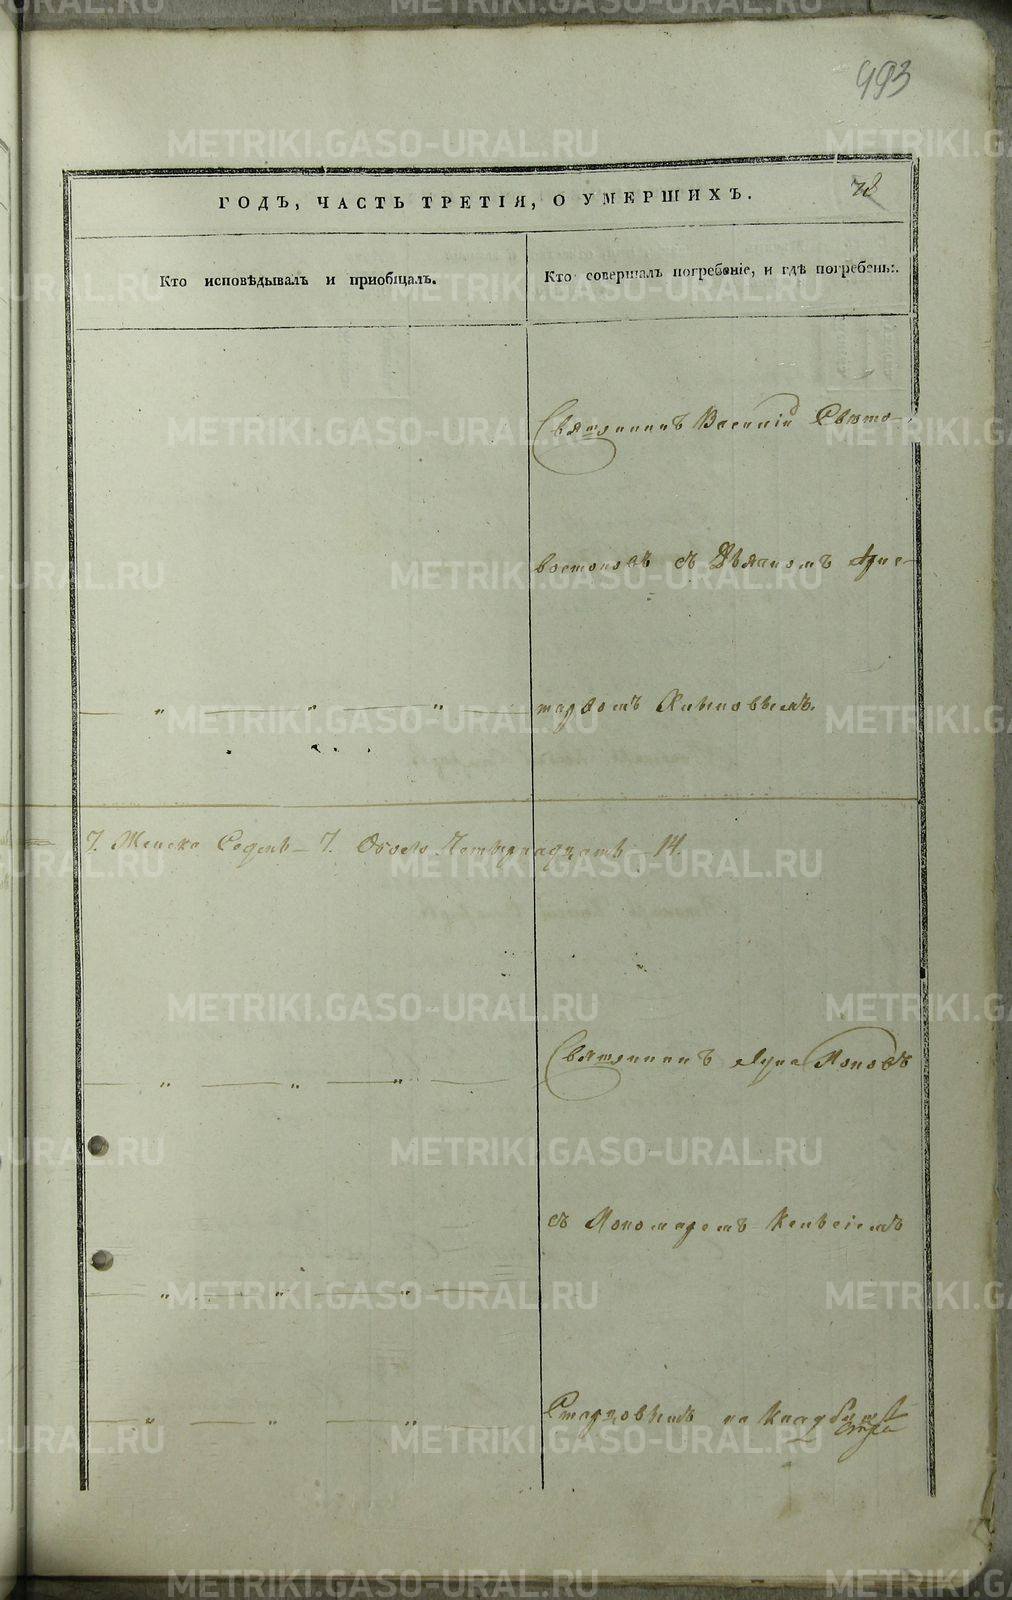 493
78
ГОДЪ, ЧАСТЬ ТРЕТІЯ, О УМЕРШИХЪ.
Кто исповѣдывалъ и пріобщалъ.
Кто совершалъ погребеніе, и гдѣ погребены.
Священникъ Василій Свѣто-
востоковъ съ Дьякономъ Ари-
стархомъ
7. Женска Седмь – 7. Обоего Четырнадцать – 14.
Священникъ Лука Поповъ
съ Пономаремъ
Старцовымъ на Кладбищѣ
METRIKI.GASO-URAL.RU